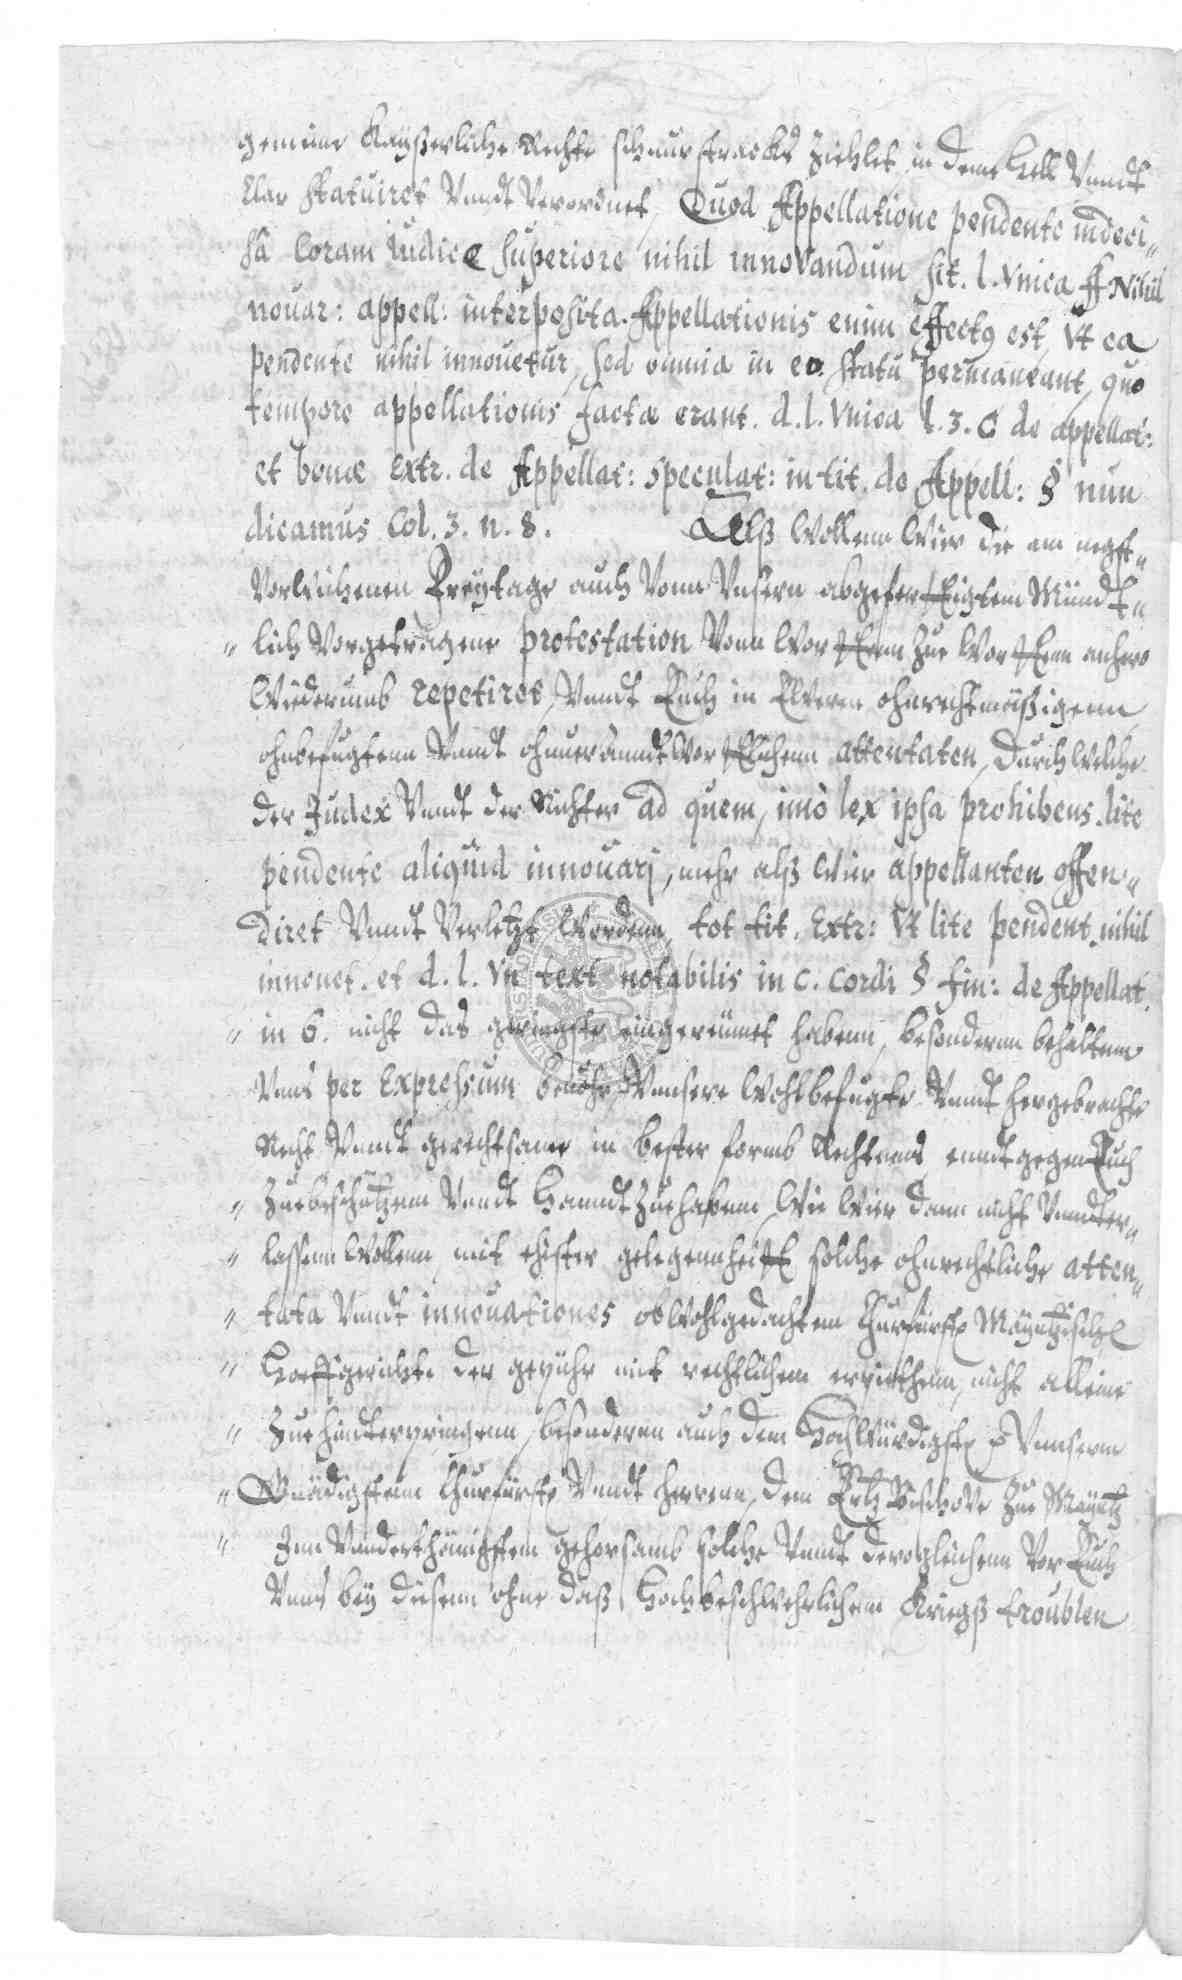 gemeine Kaÿserliche Rechte schnurstrackhs ziehlet, in deme hell Vnndt
klar statuiret Vnndt Verordnet, Quod Appellatione pendente indeci„
sâ coram iudice superiore nihil innovandum sit. l. vnica ff Nihil
nouar: appell: interposita. Appellationis enim effectus est, Vt ea
pendente nihil innouetur, sed omnia in eo statu permaneant, quo
tempore appellationis facta erant. d. l. vnica l. 3. C de appellat:
et bonæ Extr. de Appellat: Speculat: in tit. de Appell: § nun
dicamus Col. 3. n. 8. Alß wollenn Wier die am negst„
Verwichenen Freÿtage auch Vonn Vnsern abgefertigtem Mündt„
„ lich Vorgetragene protestation Vonn Wortten zue Wortten anhero
Wiederumb repetiret, Vnndt Euch in Eweren ohnrechtmäßigenn,
ohnbefugtenn Vnndt ohnuerandtwortlichenn attentaten, durch welche
der Judex Vnndt der Richter ad quem, imò lex ipsa prohibens lite
pendente aliquid innouarj, mehr alß Wier appellanten offen„
diret Vnndt Verletzt Wordenn, tot tit. Extr: Vt lite pendent. nihil
innouet. et d. l. Vn text notabilis in c. Cordi § fin: de Appellat
„ in 6. nicht das geringste eingereümet habenn, besonderen behaltenn
Vnnß per Expressum beuohr, Vnnsere Wohlbefugte Vnndt hergebrachte
Recht Vnndt gerechtsame in bester forms Rechtenns enndtgegen Euch
„ Zuebeschützenn Vnndt handtzuehabenn, Wie Wier dann nicht Vnnder„
„ lassenn Wollenn, mit ehister gelegennheitt solche ohnrechtliche atten„
„ tata Vnndt innouationes obwohlgedachtem Churfürstl. Mäyntzischl.
„ Hoeffgerichte der gepühr mit rechtlichem erpiethenn, nicht alleine
„ Zue hindterpringenn, besonderen auch dem Hochwürdigst. Vnnserm
„ Gnädigstenn Churfürsten Vnndt herrenn, dem Ertz Bischove Zue Mäyntz
„ Inn Vnderthänigstem gehorsamb solche Vnndt dergleichenn Vor Euch
Vnnß beÿ diesenn ohne daß Hochbeschwehrlichenn Kriegß troublen